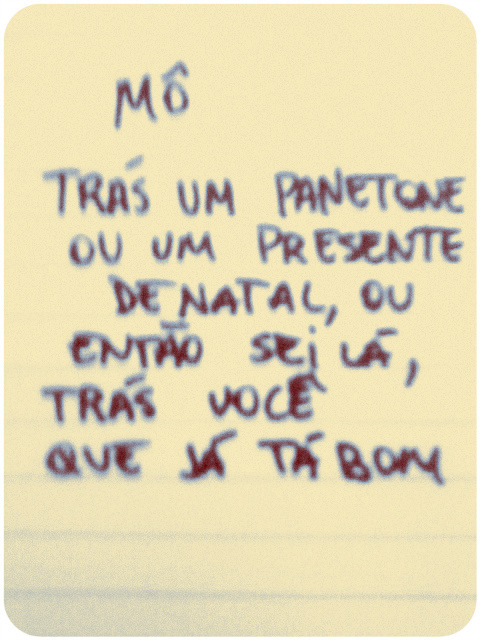 MÔ
TRÁS UM PANETONE
OU UM PRESENTE
DE NATAL, OU
ENTÃO SEI LÁ,
TRÁS VOCÊ
QUE JÁ TÁ BOM